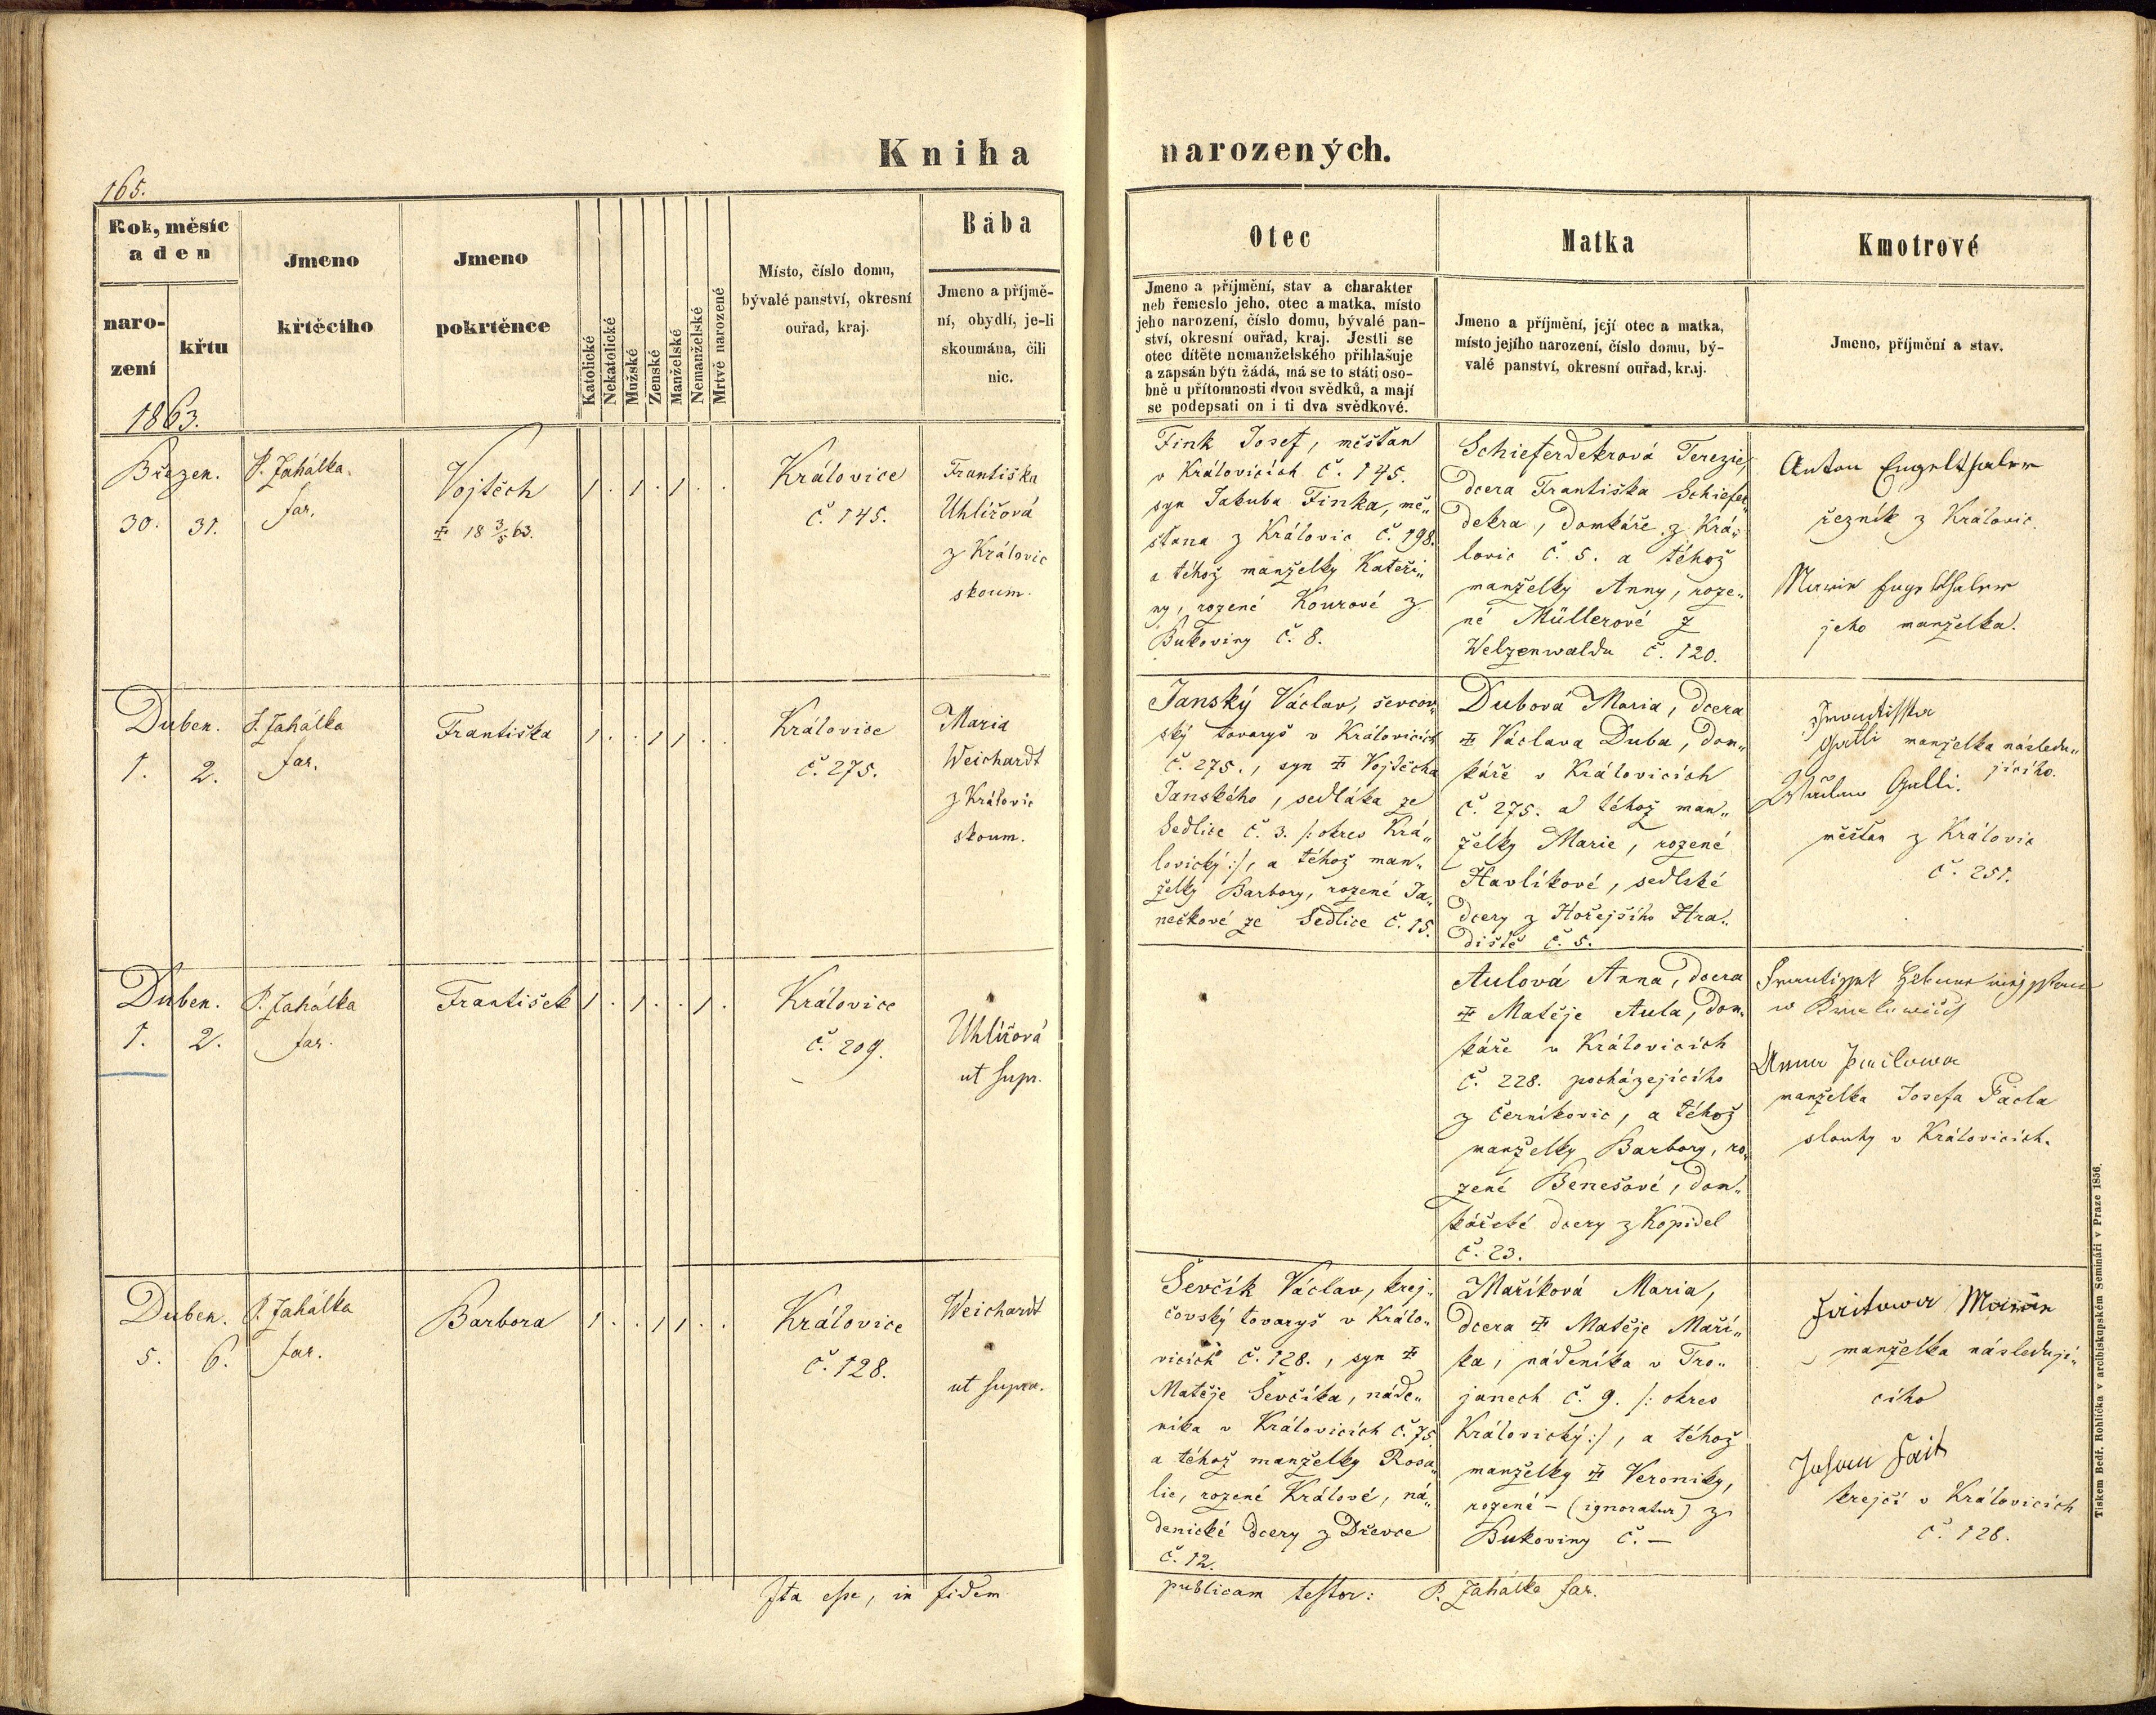 Kniha narozených.
165.
Rok, měsíc
a den
naro-
zení
křtu
Jmeno
křtěcího
Jmeno
pokrtěnce
Katolické
Nekatolické
Mužské
Zenské
Manželské
Nemanželské
Mrtvě narozené
Místo, číslo domu,
bývalé panství, okresní
ouřad, kraj.
Bába
Jmeno a příjmě-
ní, obydlí, je-li
skoumána, čili
nic.
Otec
Jmeno a příjmění, stav a charakter
neb řemeslo jeho, otec a matka, místo
jeho narození, číslo domu, bývalé pan-
ství, okresní ouřad, kraj. Jestli se
otec dítěte nemanželského přihlašuje
a zapsán býti žádá, má se to státi oso-
bně u přítomnosti dvou svědků, a mají
se podepsati on i ti dva svědkové.
Matka
Jmeno a příjmění, její otec a matka,
místo jejího narození, číslo domu, bý-
valé panství, okresní ouřad, kraj.
Kmotrové
Jmeno, příjmění a stav.
1863.
Březen.
30. 31.
P. Zahálka
far.
Vojtěch
‡ 18 3/5 63.
1 . 1 . 1 . .
Královice
č. 145.
Františka
Uhlířová
z Královic
skoum.
Fink Josef, měšťan
v Královicích č. 145.
syn Jakuba Finka, mě„
šťana z Královic č. 198.
a téhož manželky Kateři„
ny, rozené Kourové z
Bukoviny č. 8.
Schieferdekrová Terezie,
dcera Františka Schiefer„
dekra, domkáře z Krá„
lovic č. 5. a téhož
manželky Anny, roze„
né Müllerové z
Welzenwaldu č. 120.
Anton Engelthaler
řezník z Královic.
Marie Engelthaler
jeho manželka.
Duben.
1. 2.
P. Zahálka
far.
Františka
1 . . 1 1 . .
Královice
č. 275.
Maria
Weichardt
z Královic
skoum.
Janský Václav, ševcov„
ský tovaryš v Královicích
č. 275., syn ‡ Vojtěcha
Janského, sedláka ze
Sedlice č. 3. /: okres Krá„
lovický :/, a téhož man„
želky Barbory, rozené Ja„
nečkové ze Sedlice č. 15.
Dubová Maria, dcera
‡ Václava Duba, dom„
káře v Královicích
č. 275. a téhož man„
želky Marie, rozené
Havlíkové, sedlské
dcery z Hořejšího Hra„
diště č. 5.
Frantisska
Galli manželka následu„
jícího.
Galli.
měšťan z Královic
č. 251.
Duben.
1. 2.
P. Zahálka
far.
František
1 . 1 . . 1 .
Královice
č. 209.
Uhlířová
ut supr.
Aulová Anna, dcera
‡ Matěje Aula, dom„
káře v Královicích
č. 228. pocházejícího
z Černíkovic, a téhož
manželky Barbory, ro„
zené Benešové, dom„
kářské dcery z Kopidel
č. 23.
Frantissek
w
Anna Paclowa
manželka Josefa Pacla
slouhy v Královicích.
Duben.
5. 6.
P. Zahálka
far.
Barbora
1 . . 1 1 . .
Královice
č. 128.
Weichardt
ut supra.
Ševčík Václav, krej„
čovský tovaryš v Králo„
vicích č. 128., syn ‡
Matěje Ševčíka, náde„
níka v Královicích č. 75
a téhož manželky Rosa„
lie, rozené Králové, ná„
denické dcery z Dřevce
č. 12.
Maříková Maria,
dcera ‡ Matěje Maří„
ka, nádeníka v Tro„
janech č. 9. /: okres
Královický :/, a téhož
manželky ‡ Veroniky,
rozené – (ignoratur) z
Bukoviny č. –
Faitowa Marie
manželka následují„
cího
Johann Fait
krejčí v Královicích
č. 128.
Ita esse, in fidem
publicam testor: P. Zahálka far.
Tiskem Bedř. Rohlíčka v arcibiskupském Semináři v Praze 1856.